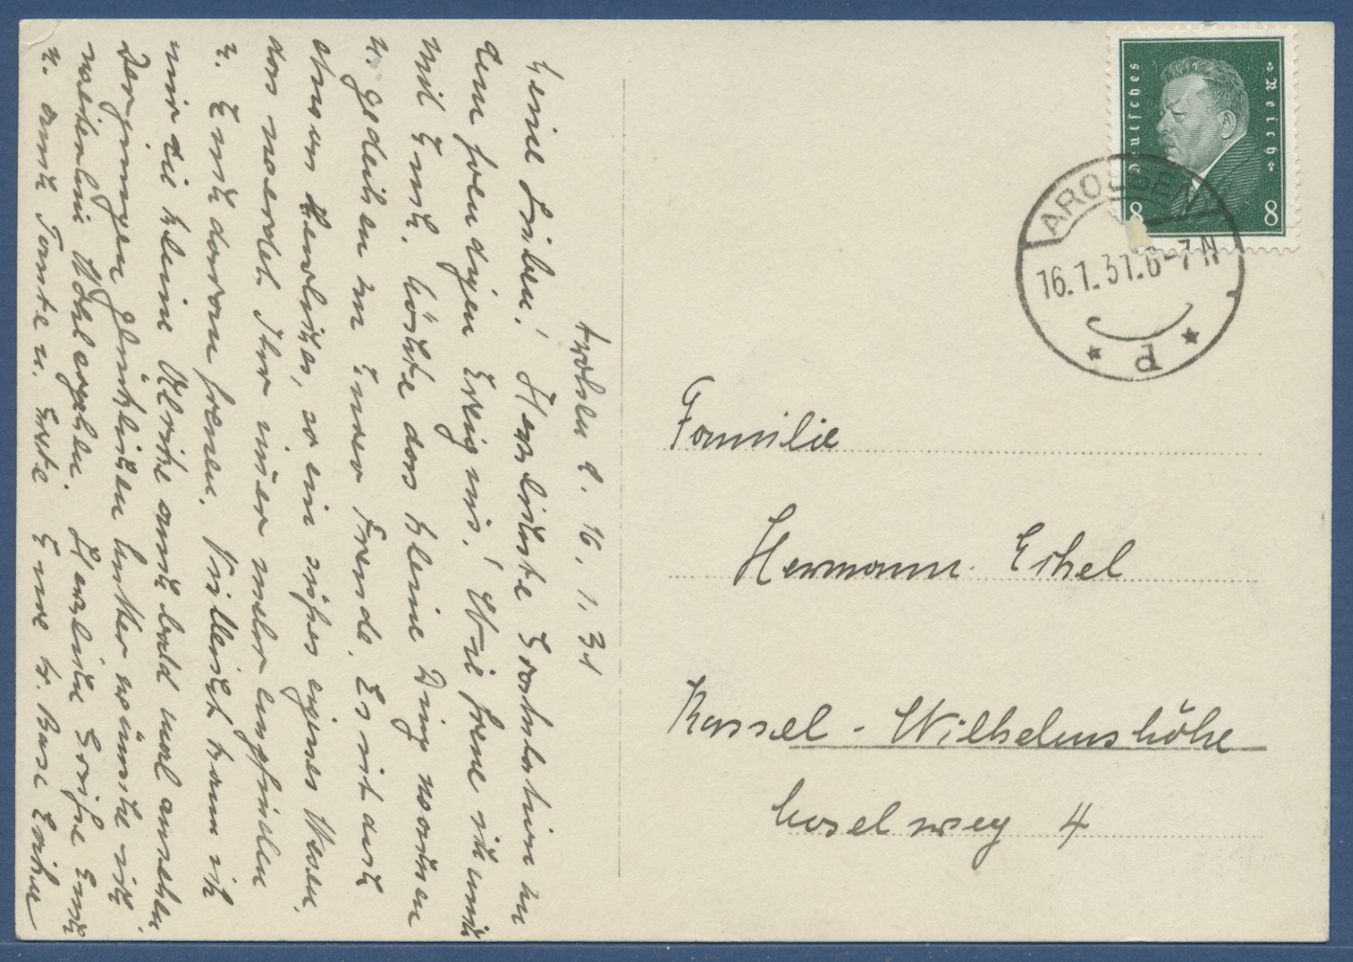 Arolsen d. 16. 1. 31
Meine Lieben! Herzlichste Gratulation zu
dem freudigen Ereignis! Wie freue ich mich
mit Euch. Möchte das kleine Ding wachsen
u. gedeihen zu Eurer Freude. Es ist doch
etwas Herrliches, so ein süßes eigenes Wesen,
das werdet Ihr immer mehr empfinden
u. Euch daran freuen. Vielleicht kann ich
mir die kleine Ulrike auch bald mal ansehen
Der jungen glücklichen Mutter wünsche ich
weiterhin Wohlergehen. Herzliche Grüße Euch
u. auch Tante u. Eure
Familie
Hermann
Kassel - Wilhelmshöhe
weg 4
Deutsches Reich
8 8
AROLSEN
16.1.31.6-7N
* d *